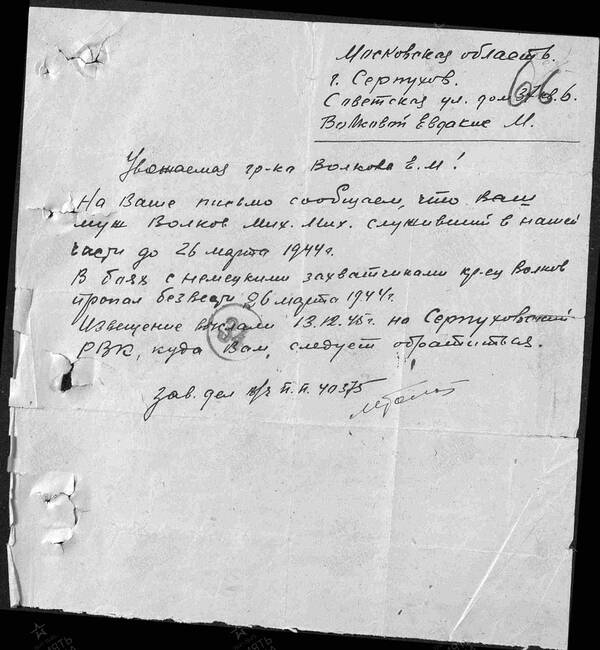 Московская область.
г. Серпухов.
Советская ул. дом 37 кв. 6.
66
Волковой Евдакие М.
Уважаемая гр-ка Волкова Е.М!
На Ваше письмо сообщаем, что Ваш
муж Волков Мих. Мих. служивший в нашей
части до 26 марта 1944г.
В боях с немецкими захватчиками кр-ец Волков
пропал без вести 26 марта 1944г.
Извещение выслали 13.12.45г. на Серпуховский
РВК, куда Вам, следует обратиться.
зав. дел в/ч п.п. 40375